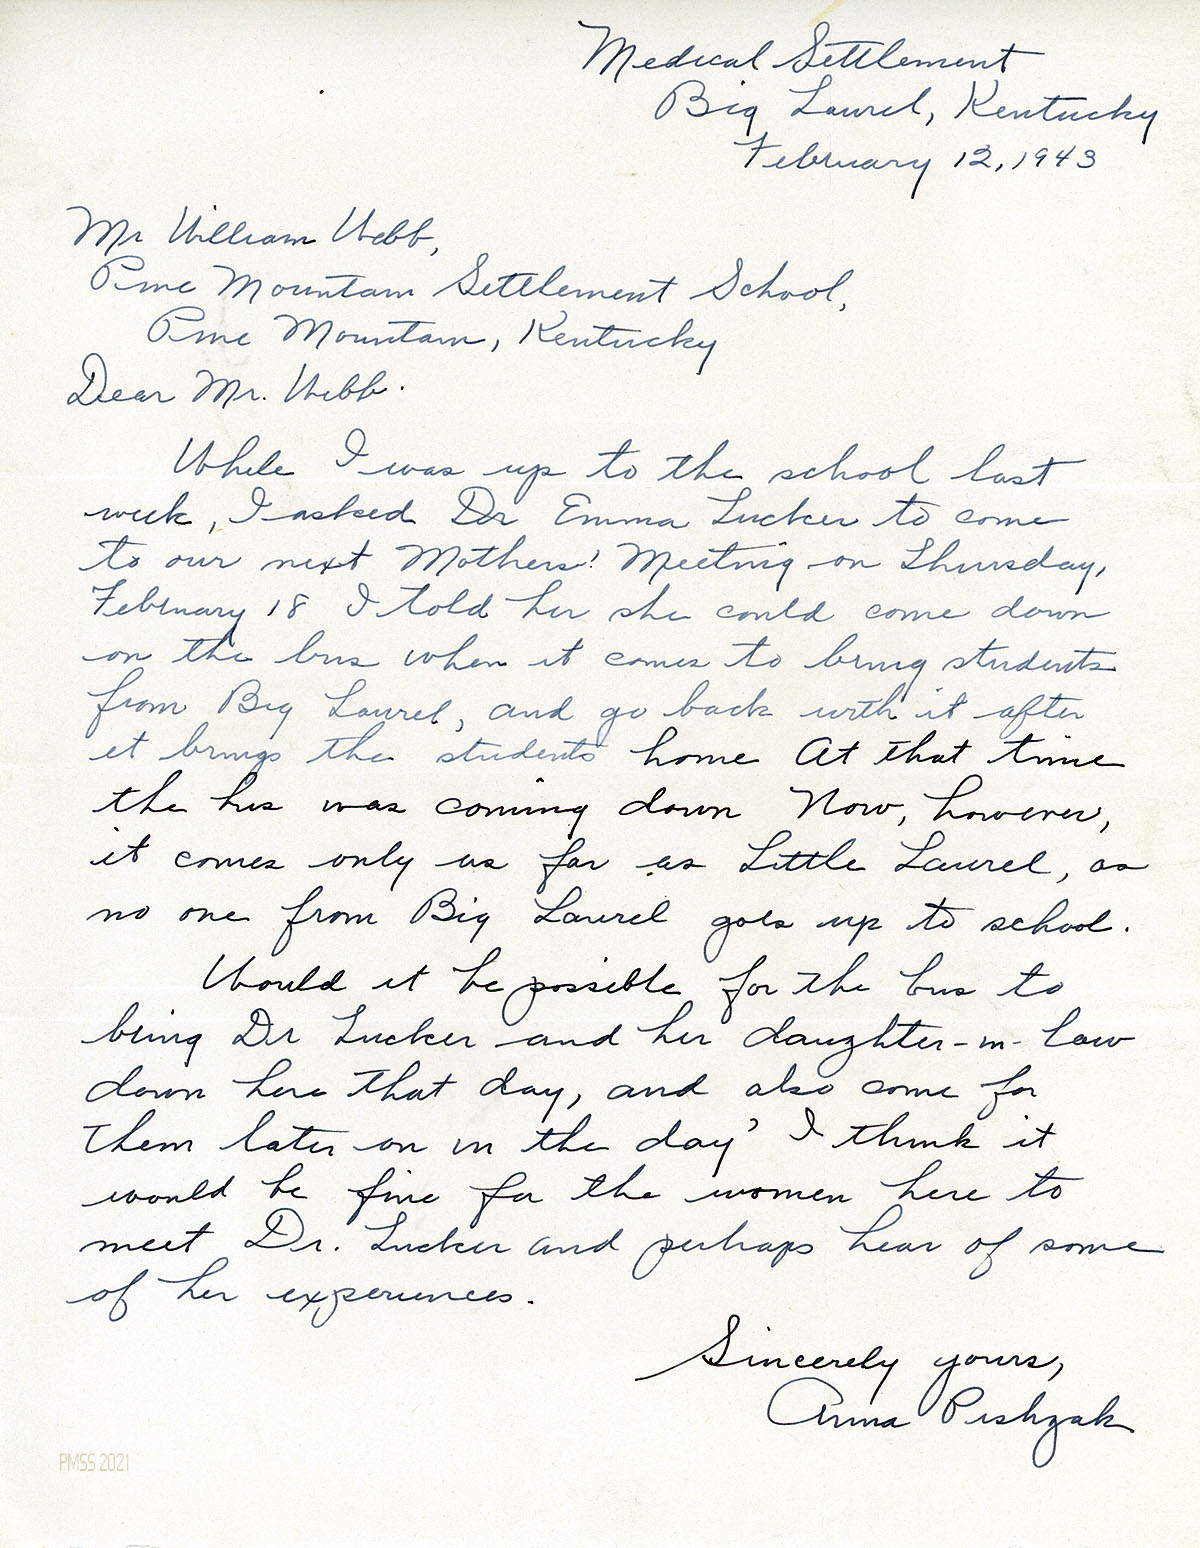 Medical Settlement
Big Laurel, Kentucky
February 12, 1943
Mr William Webb,
Pine Mountain Settlement School,
Pine Mountain, Kentucky
Dear Mr. Webb.
While I was up to the school last
week, I asked Dr Emma Tucker to come
to our next Mothers' Meeting on Thursday,
February 18 I told her she could come down
on the bus when it comes to bring students
from Big Laurel, and go back with it after
it brings the students home At that time
the bus was coming down Now, however,
it comes only as far as Little Laurel, as
no one from Big Laurel goes up to school.
Would it be possible for the bus to
bring Dr Tucker and her daughter-in-law
down here that day, and also come for
them later on in the day? I think it
would be fine for the women here to
meet Dr. Tucker and perhaps hear of some
of her experiences.
Sincerely yours,
Anna Pishzak
PMSS 2021